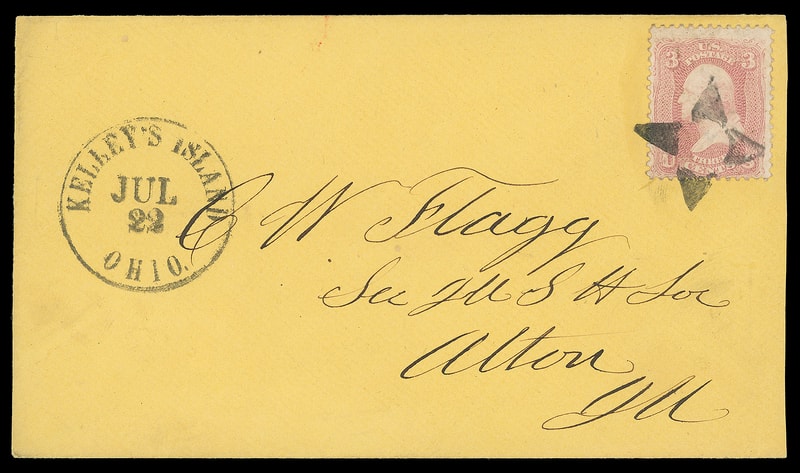 KELLEY'S ISLAND
JUL
22
OHIO.
3 U.S. 3
POSTAGE
C W Flagg
Sec Ill S H Soc
Alton
Ill